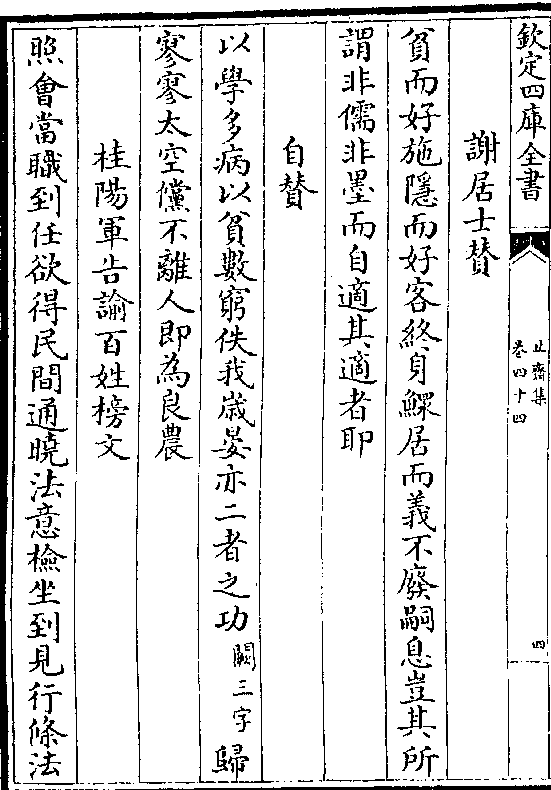 欽定四庫全書
止齋集
卷四十四
四
謝居士賛
貧而好施隱而好客終身鰥居而義不廢嗣息豈其所
謂非儒非墨而自適其適者耶
自賛
以學多病以貧數窮佚我歲晏亦二者之功闕三字歸
寥寥太空儻不離人即為良農
桂陽軍告諭百姓榜文
照會當職到任欲得民間通曉法意檢坐到見行條法